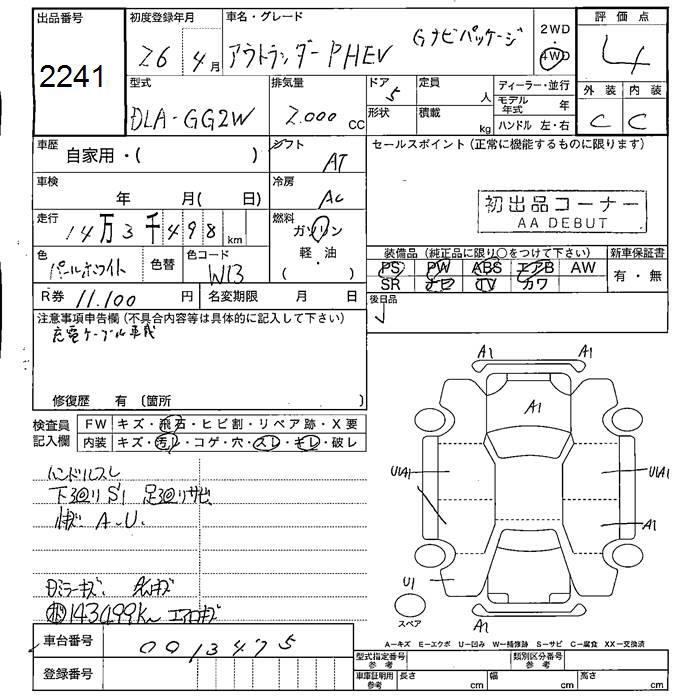 出品番号
2241
初度登録年月
26年 4月
車名・グレード
アウトランダーPHEV Gナビパッケージ
2WD・4WD
評価点
4
外装 内装
C C
型式
DLA-GG2W
排気量
2.000 CC
ドア
5
定員
人
形状
積載
kg
ディーラー・並行
モデル年式 年
ハンドル 左・右
車歴
自家用・( )
シフト
AT
セールスポイント(正常に機能するものに限ります)
車検
年 月( 日)
冷房
AC
初出品コーナー
AA DEBUT
走行
14万3千498km
燃料
ガソリン
軽・油
( )
色
パールホワイト
色替
色コード
W13
装備品(純正品に限り○をつけて下さい)
PS PW ABS エアB AW
SR ナビ TV カワ
新車保証書
有・無
R券 11.100円
名変期限 月 日
後日品
注意事項申告欄(不具合内容等は具体的に記入して下さい)
充電ケーブル車載
修復歴 有(箇所 )
検査員記入欄
FW キズ・飛石・ヒビ割・リペア跡・X要
内装 キズ・汚レ・コゲ・穴・スレ・キレ・破レ
ハンドルスレ
下廻りS1 足廻りサビ
A.U.
ミラーキズ
143499Km エアロキズ
A1 A1
A1
U1A1 U1A1
A1
U1
A1
スペア
A=キズ E=エクボ U=凹み W=補修跡 S=サビ C=腐食 XX=交換済
車台番号
0013475
登録番号
型式指定番号 参考
類別区分番号 参考
車庫証明用 参考
長さ cm 幅 cm 高さ cm